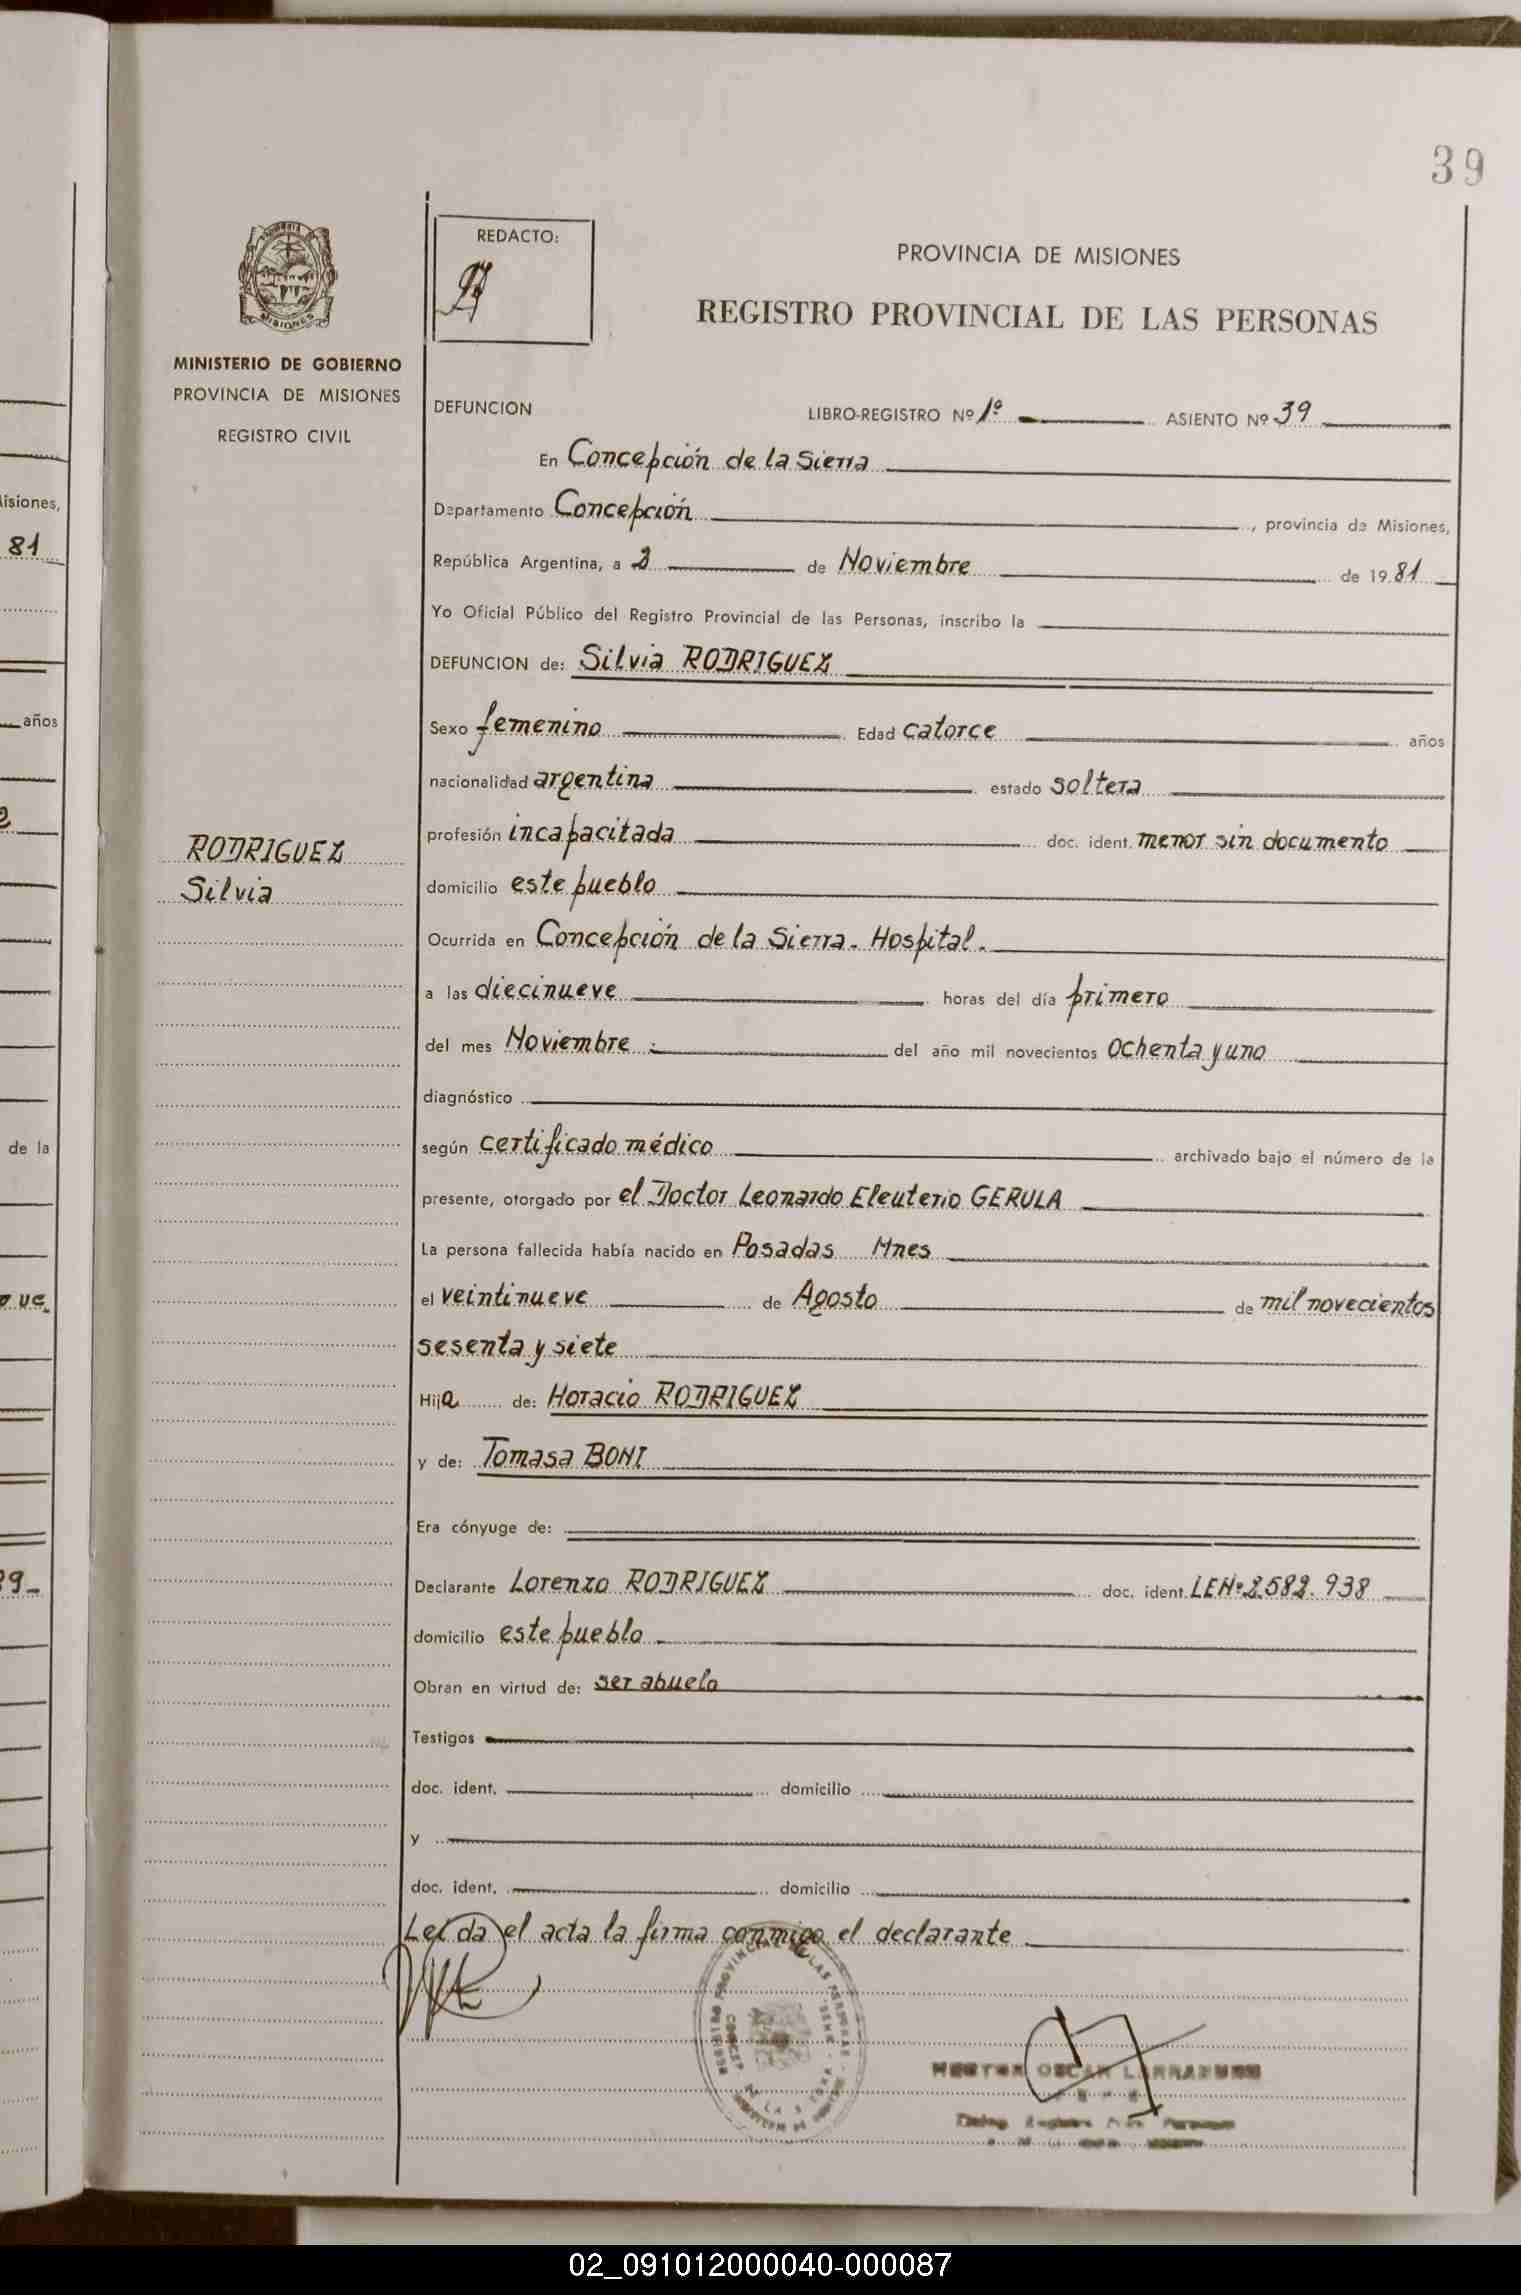 39
REDACTO:
PROVINCIA DE MISIONES
REGISTRO PROVINCIAL DE LAS PERSONAS
MISIONES
MINISTERIO DE GOBIERNO
PROVINCIA DE MISIONES
REGISTRO CIVIL
DEFUNCION LIBRO-REGISTRO Nº 1º ASIENTO Nº 39
En Concepción de la Sierra
Departamento Concepción, provincia de Misiones,
República Argentina, a 2 de Noviembre de 1981
Yo Oficial Público del Registro Provincial de las Personas, inscribo la
DEFUNCION de: Silvia RODRIGUEZ
Sexo femenino Edad catorce años
nacionalidad argentina estado soltera
profesión incapacitada doc. ident. menor sin documento
RODRIGUEZ
Silvia
domicilio este pueblo
Ocurrida en Concepción de la Sierra - Hospital.
a las diecinueve horas del día primero
del mes Noviembre del año mil novecientos ochenta y uno
diagnóstico
según certificado médico archivado bajo el número de la
presente, otorgado por el Doctor Leonardo Eleuterio GERULA
La persona fallecida había nacido en Posadas Mnes
el veintinueve de Agosto de mil novecientos
sesenta y siete
Hija de: Horacio RODRIGUEZ
y de: Tomasa BONI
Era cónyuge de:
Declarante Lorenzo RODRIGUEZ doc. ident. LENº 2.582.938
domicilio este pueblo
Obran en virtud de: ser abuelo
Testigos
doc. ident. domicilio
y
doc. ident. domicilio
Leída el acta la firma conmigo el declarante
Misiones,
81
años
de la
02_091012000040-000087